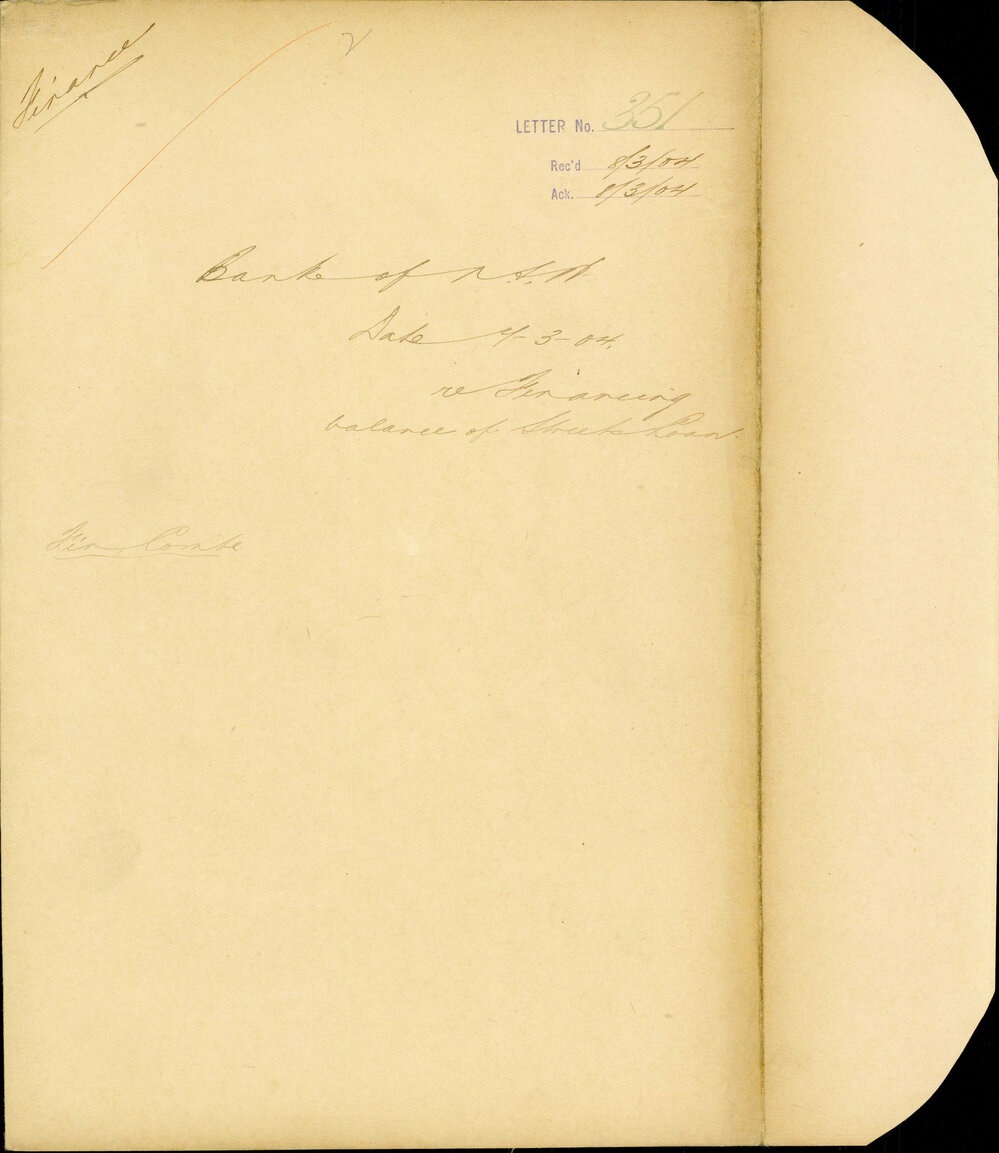 Finance
LETTER No. 351
Rec'd 8/3/04
Ack. 8/3/04
Bank of N.S.W.
Date 7-3-04.
re Financing
balance of Streets Loan.
Fin. Comte